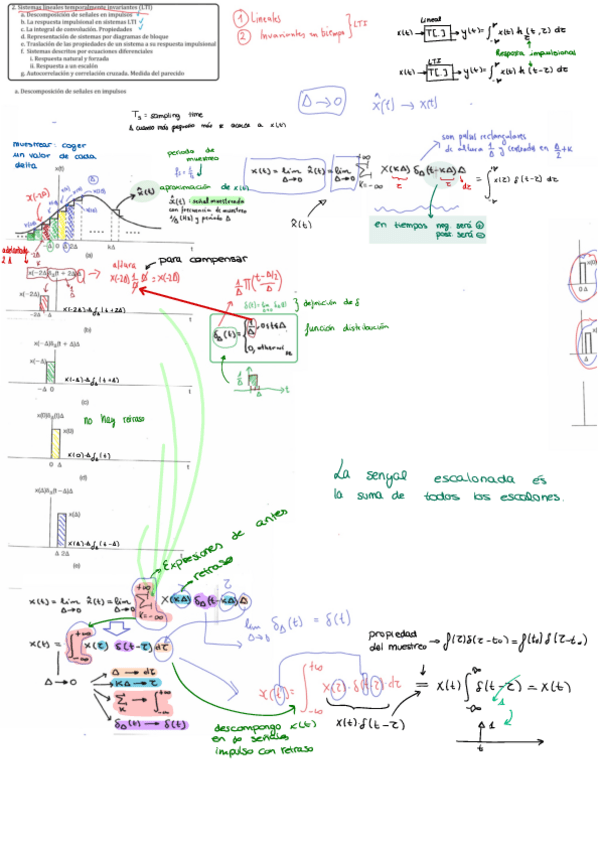 2. Sistemas lineales temporalmente invariantes (LTI)
a. Descomposición de señales en impulsos
b. La respuesta impulsional en sistemas LTI
c. La integral de convolución. Propiedades
d. Representación de sistemas por diagramas de bloque
e. Traslación de las propiedades de un sistema a su respuesta impulsional
f. Sistemas descritos por ecuaciones diferenciales
i. Respuesta natural y forzada
ii. Respuesta a un escalón
g. Autocorrelación y correlación cruzada. Medida del parecido
① Lineales
② Invariantes en tiempo } LTI
Lineal
x(t) → T[.] → y(t) = ∫ x(τ) h (t, τ) dτ
Respuesta impulsional
LTI
x(t) → T[.] → y(t) = ∫ x(τ) h (t-τ) dτ
a. Descomposición de señales en impulsos
Δ → 0
x̂(t) → x(t)
Ts = sampling time
muestrear: coger
un valor de cada
delta
periodo de
muestreo
x(-2Δ)
x̂(t)
aproximación de x(t)
x̂(t): señal muestreada
con frecuencia de muestreo
1/Δ (Hz) y periodo Δ
x(t) = lim Δ→0 x̂(t) = lim Δ→0 Σ k=-∞ +∞ x(kΔ) δΔ(t-kΔ) Δ = ∫ x(τ) δ(t-τ) dτ
x̂(t)
son pulsos rectangulares
de altura 1/Δ y centrada en Δ/2 + k
en tiempos neg. será
post. será
-Δ 0 Δ 2Δ kΔ
(a)
x(-2Δ)δΔ(t + 2Δ)Δ
altura
x(-2Δ) 1/Δ · Δ = x(-2Δ)
para compensar
1/Δ Π((t-Δ/2)/Δ)
definición de δ
δΔ(t) = { 1/Δ, 0≤t≤Δ
0, otherwise
función distribución
x(-2Δ)
x(-2Δ)·Δ·δΔ(t+2Δ)
(b)
x(-Δ)δΔ(t + Δ)Δ
x(-Δ)
-Δ 0
x(-Δ)·Δ·δΔ(t+Δ)
(c)
x(0)δΔ(t)Δ
no hay retraso
x(0)
0 Δ
x(0)·Δ·δΔ(t)
(d)
x(Δ)δΔ(t-Δ)Δ
x(Δ)
Δ 2Δ
x(Δ)·Δ·δΔ(t-Δ)
(e)
La senyal escalonada és
la suma de todos los escalones.
Expresiones de antes
retraso
x(t) = lim Δ→0 x̂(t) = lim Δ→0 Σ k=-∞ +∞ x(kΔ) δΔ(t-kΔ)Δ
lim Δ→0 δΔ(t) = δ(t)
x(t) = ∫ -∞ +∞ x(τ) δ(t-τ) dτ
Δ → 0
Δ → dτ
kΔ → τ
Σ k → ∫ -∞ +∞
δΔ(t) → δ(t)
propiedad
del muestreo → f(τ)δ(τ-t₀) = f(t₀) δ(τ-t₀)
x(t) = ∫ -∞ +∞ x(τ)·δ(t-τ)·dτ = x(t) ∫ -∞ ∞ δ(t-τ) = x(t)
x(t) δ(t-τ)
1
t
descompongo x(t)
en ∞ señales
impulso con retraso